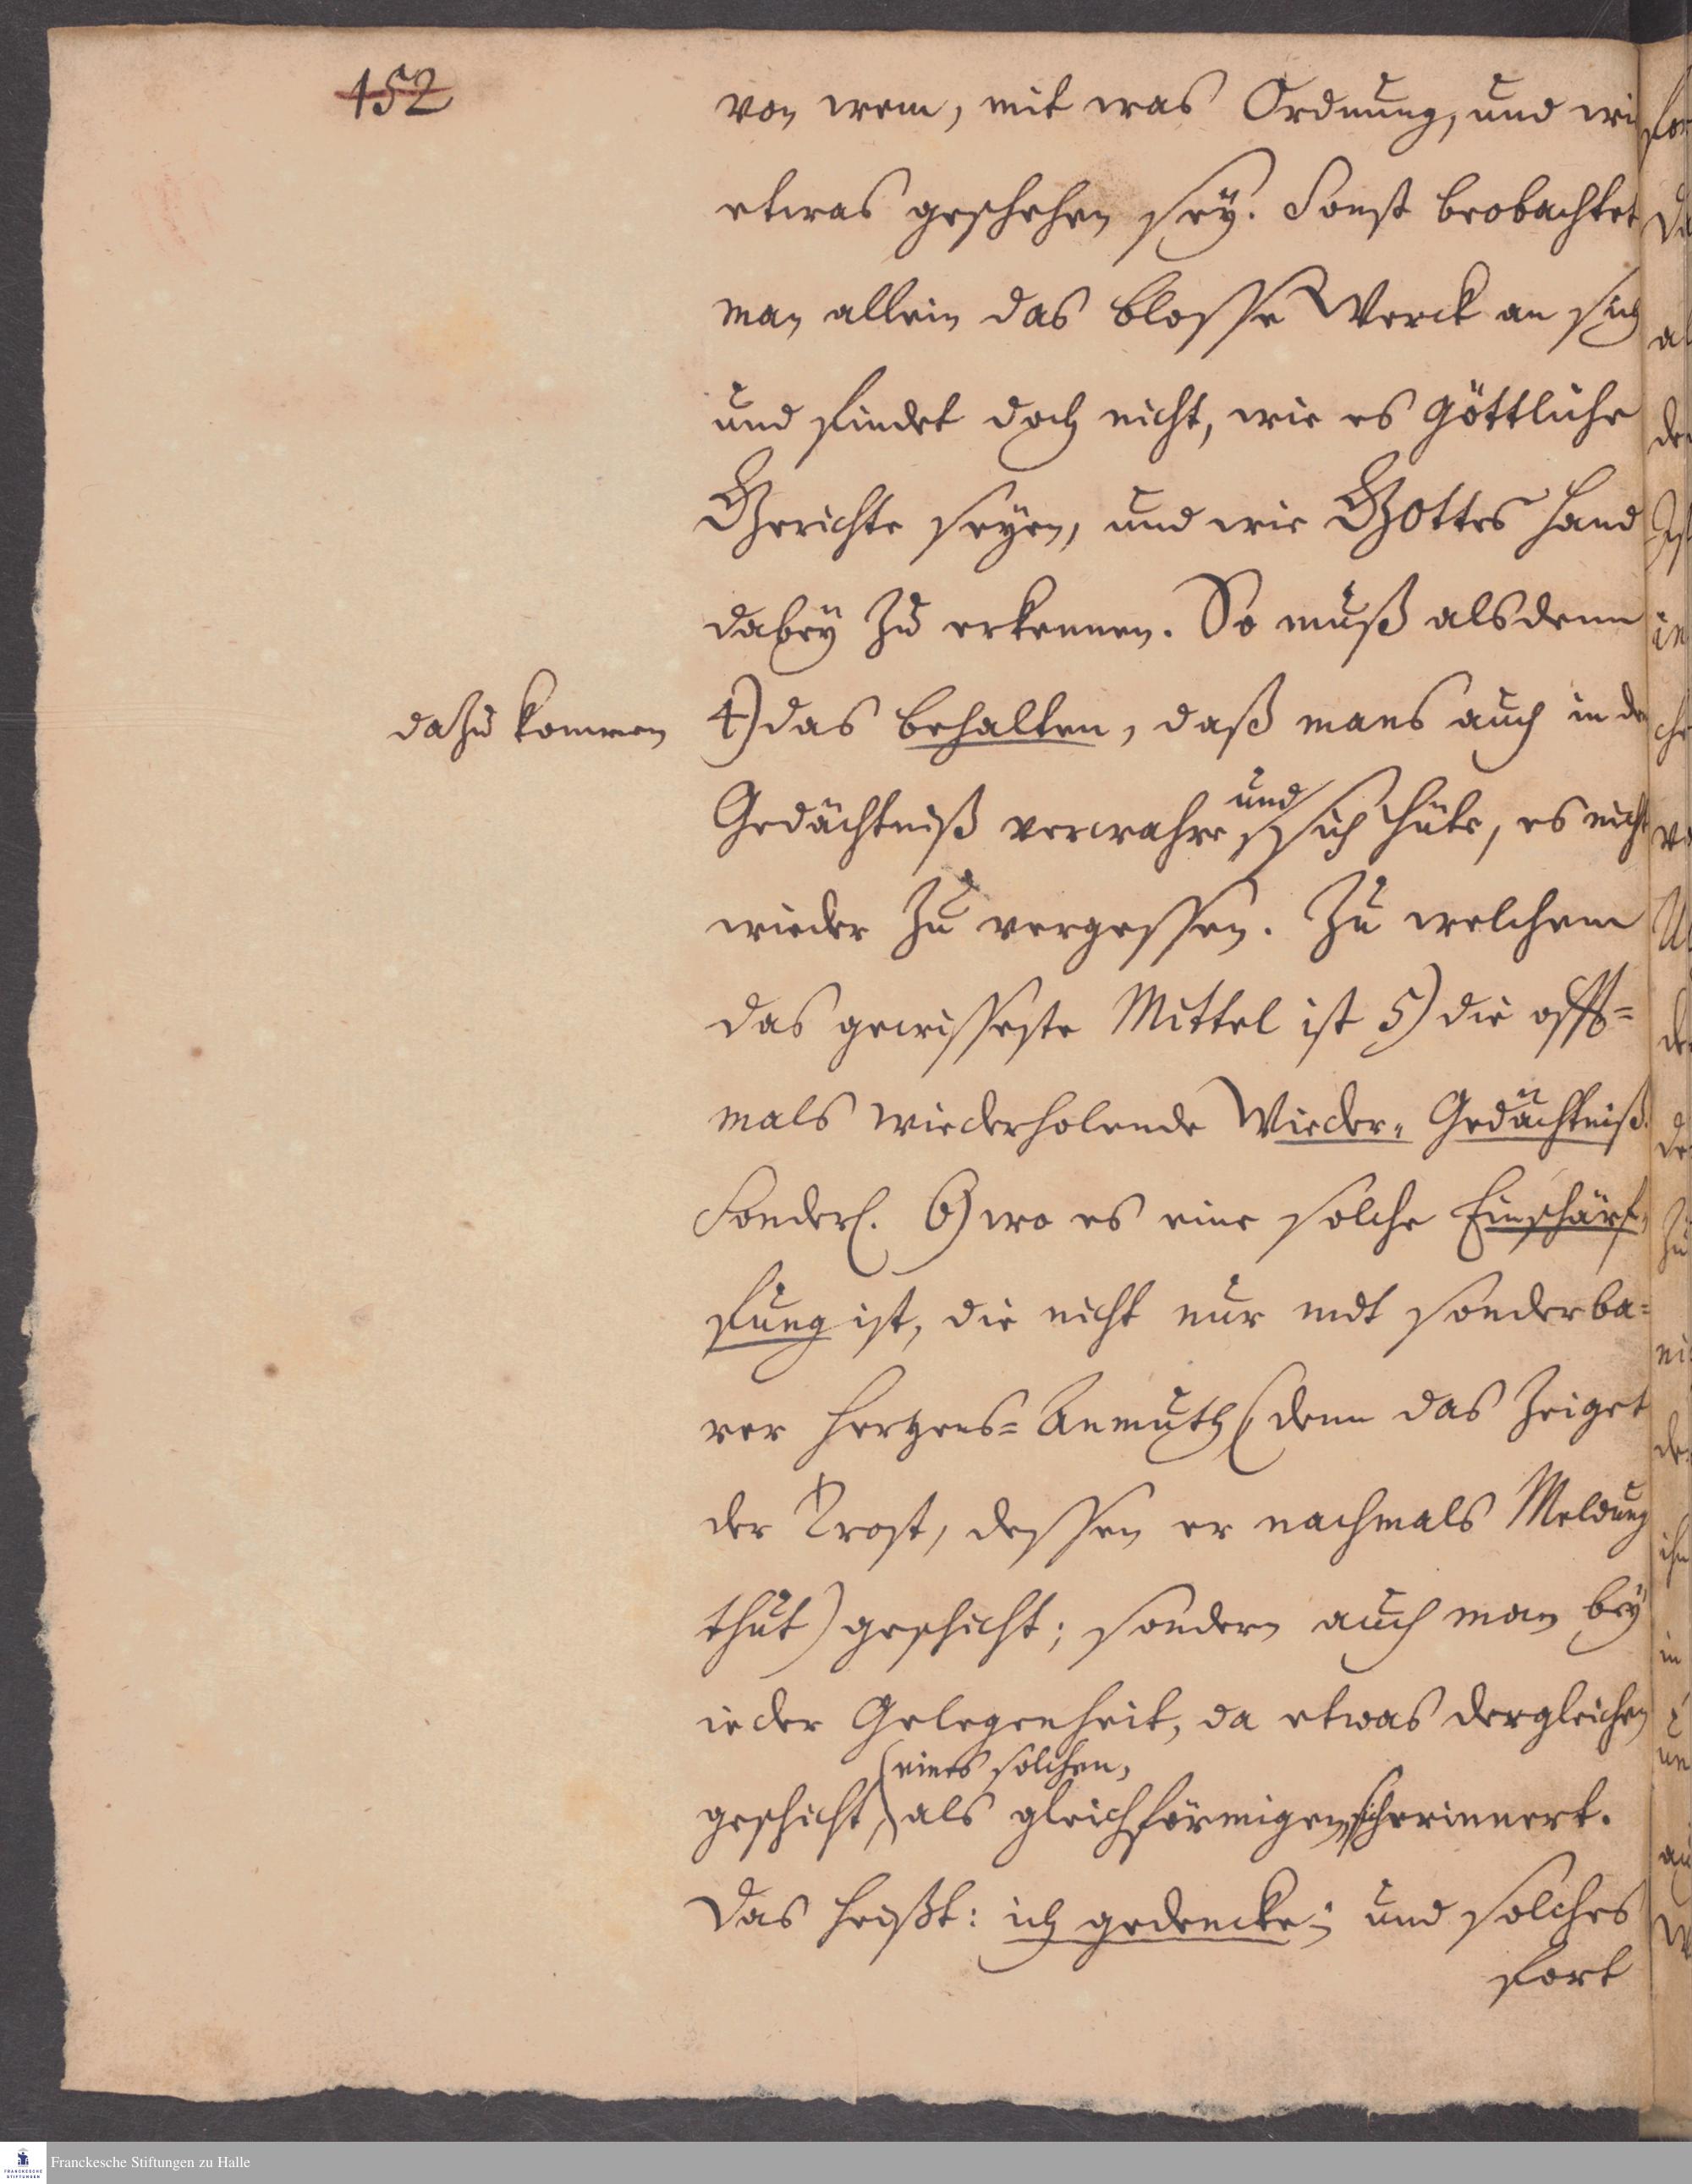 152
von wem, mit was Ordnung, und wie
etwas geschehen sey. Sonst beobachtet
man allein das blosse Werck an sich
und findet doch nicht, wie es göttliche
Gerichte seyen, und wie Gottes Hand
dabey zu erkennen. So muß alsdenn
dazu kommen
4) das behalten, daß mans auch in dem
und
Gedächtniß verwahre, sich hüte, es nicht
wieder zu vergessen. Zu welchem
das gewisseste Mittel ist 5) die offt=
mals wiederholende Wieder= Gedächtniß.
Sonderl. 6) wo es eine solche Einschärf=
fung ist, die nicht nur mit sonderba=
rer Hertzens=Anmuth (denn das zeiget
der Trost, dessen er nachmals Meldung
thut) geschicht; sondern auch man bey
ieder Gelegenheit, da etwas dergleichen
eines solchen,
geschicht, als gleichförmigen sich erinnert.
Das heißt: ich gedencke; und solches
fort
Franckesche Stiftungen zu Halle